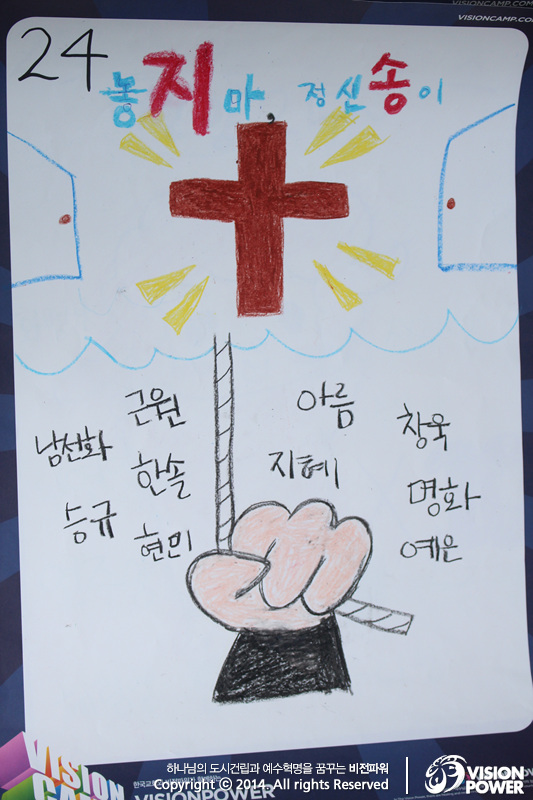 VISIONCAMP.COM
VISIONCAMP.COM
24
놓지마, 정신송이
근원
아름
창욱
남선화
한솔
지혜
명화
승규
현미
예은
하나님의 도시건립과 예수혁명을 꿈꾸는 비전파워
VISION
CAMP
VISIONPOWER
Copyright ⓒ 2014. All rights Reserved
VISION
POWER